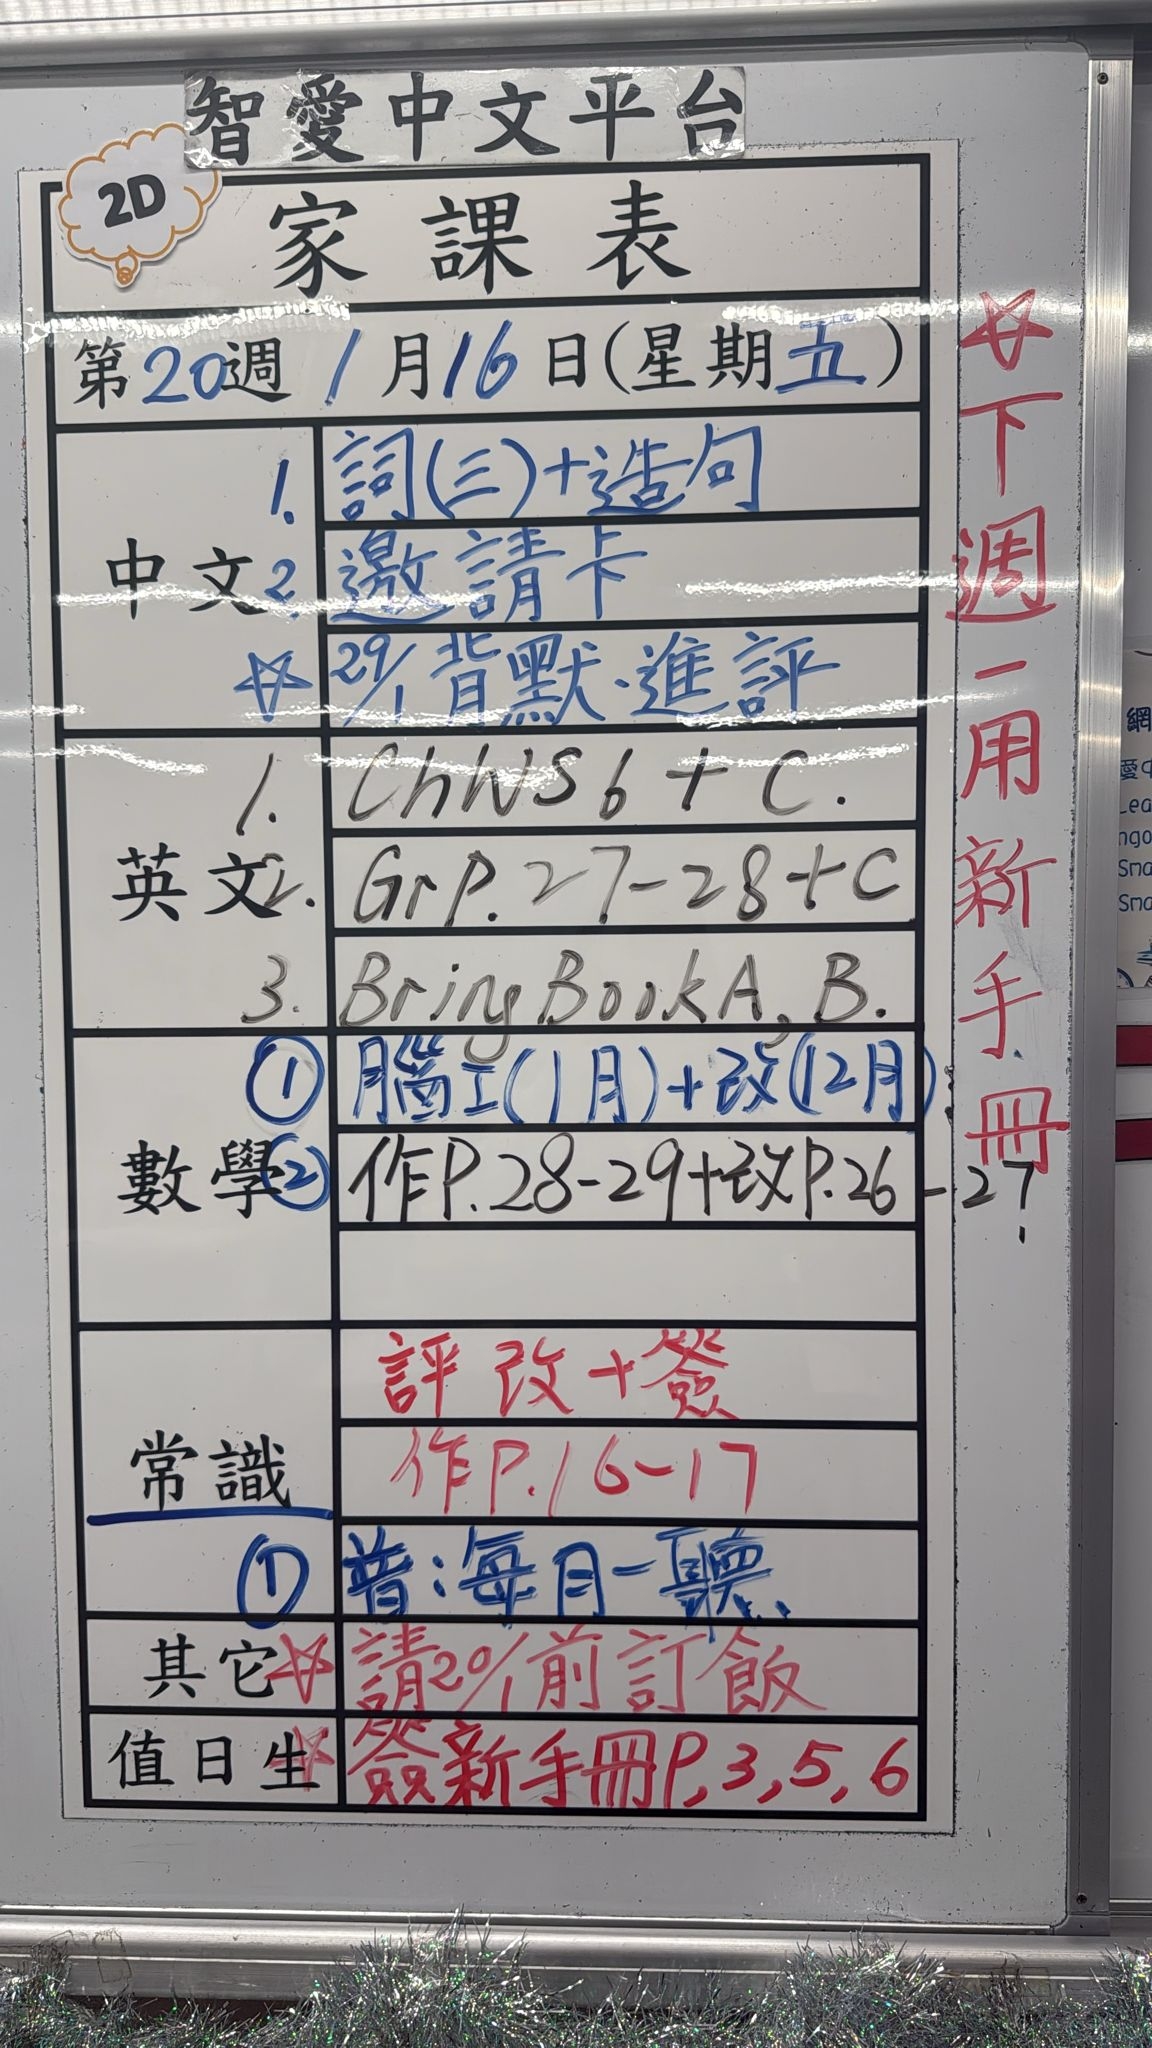 智愛中文平台
2D
家課表
第20週 1月16日(星期五)
中文
1. 詞(三)+造句
2. 邀請卡
☆ 29/1 背默.進評
英文
1. ChWS6 + C.
2. GrP.27-28+C
3. Bring Book A, B.
數學
① 腦工(1月)+改(12月)
② 作P.28-29+改P.26-27.
常識
評改+簽
作P.16-17
① 普:每月一聽
其它 ☆ 請20/1前訂飯
值日生 ☆ 簽新手冊P,3,5,6
☆下週一用新手冊
網
愛中
Lea
ngo
Sma
Sma